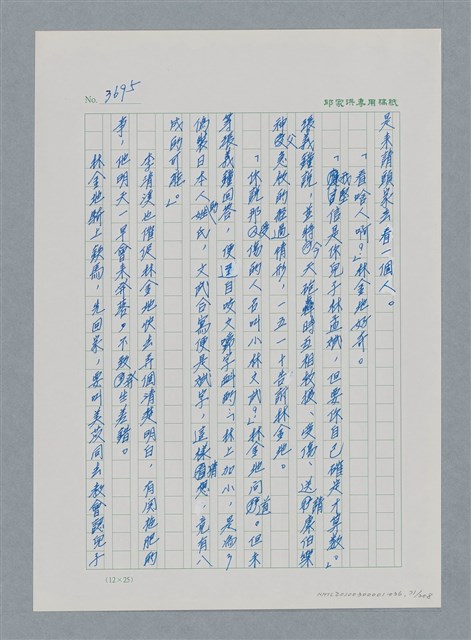 No. 3695
邱家洪專用稿紙
是來請頭家去看一個人。
「看啥人啊？」林金地好奇。
「我堅信是你兒子林直斌，但要你自己確定才算數。」
張義鐘說，並將今天砲轟時互相救援、受傷、送請康伯樂
神父急救的經過情形，一五一十告訴林金地。
「你說那受傷的人名叫小林文武？」林金地問道。但未
等張義鐘回答，便逕自咬文嚼字糾的「林上加小，是為
偽裝日本人的姓氏，文武合寫便是斌字，這樣猜想，竟有八
成的可能。」
李清漢也催促林金地快去弄個清楚明白，有關拖肥的
事，他明天一早會來弄幕，不致發生差錯。
林金地漸上鎖，先回家，要叫美女同去教會認兒子
（12×25）
NML20100300001-036_71/208